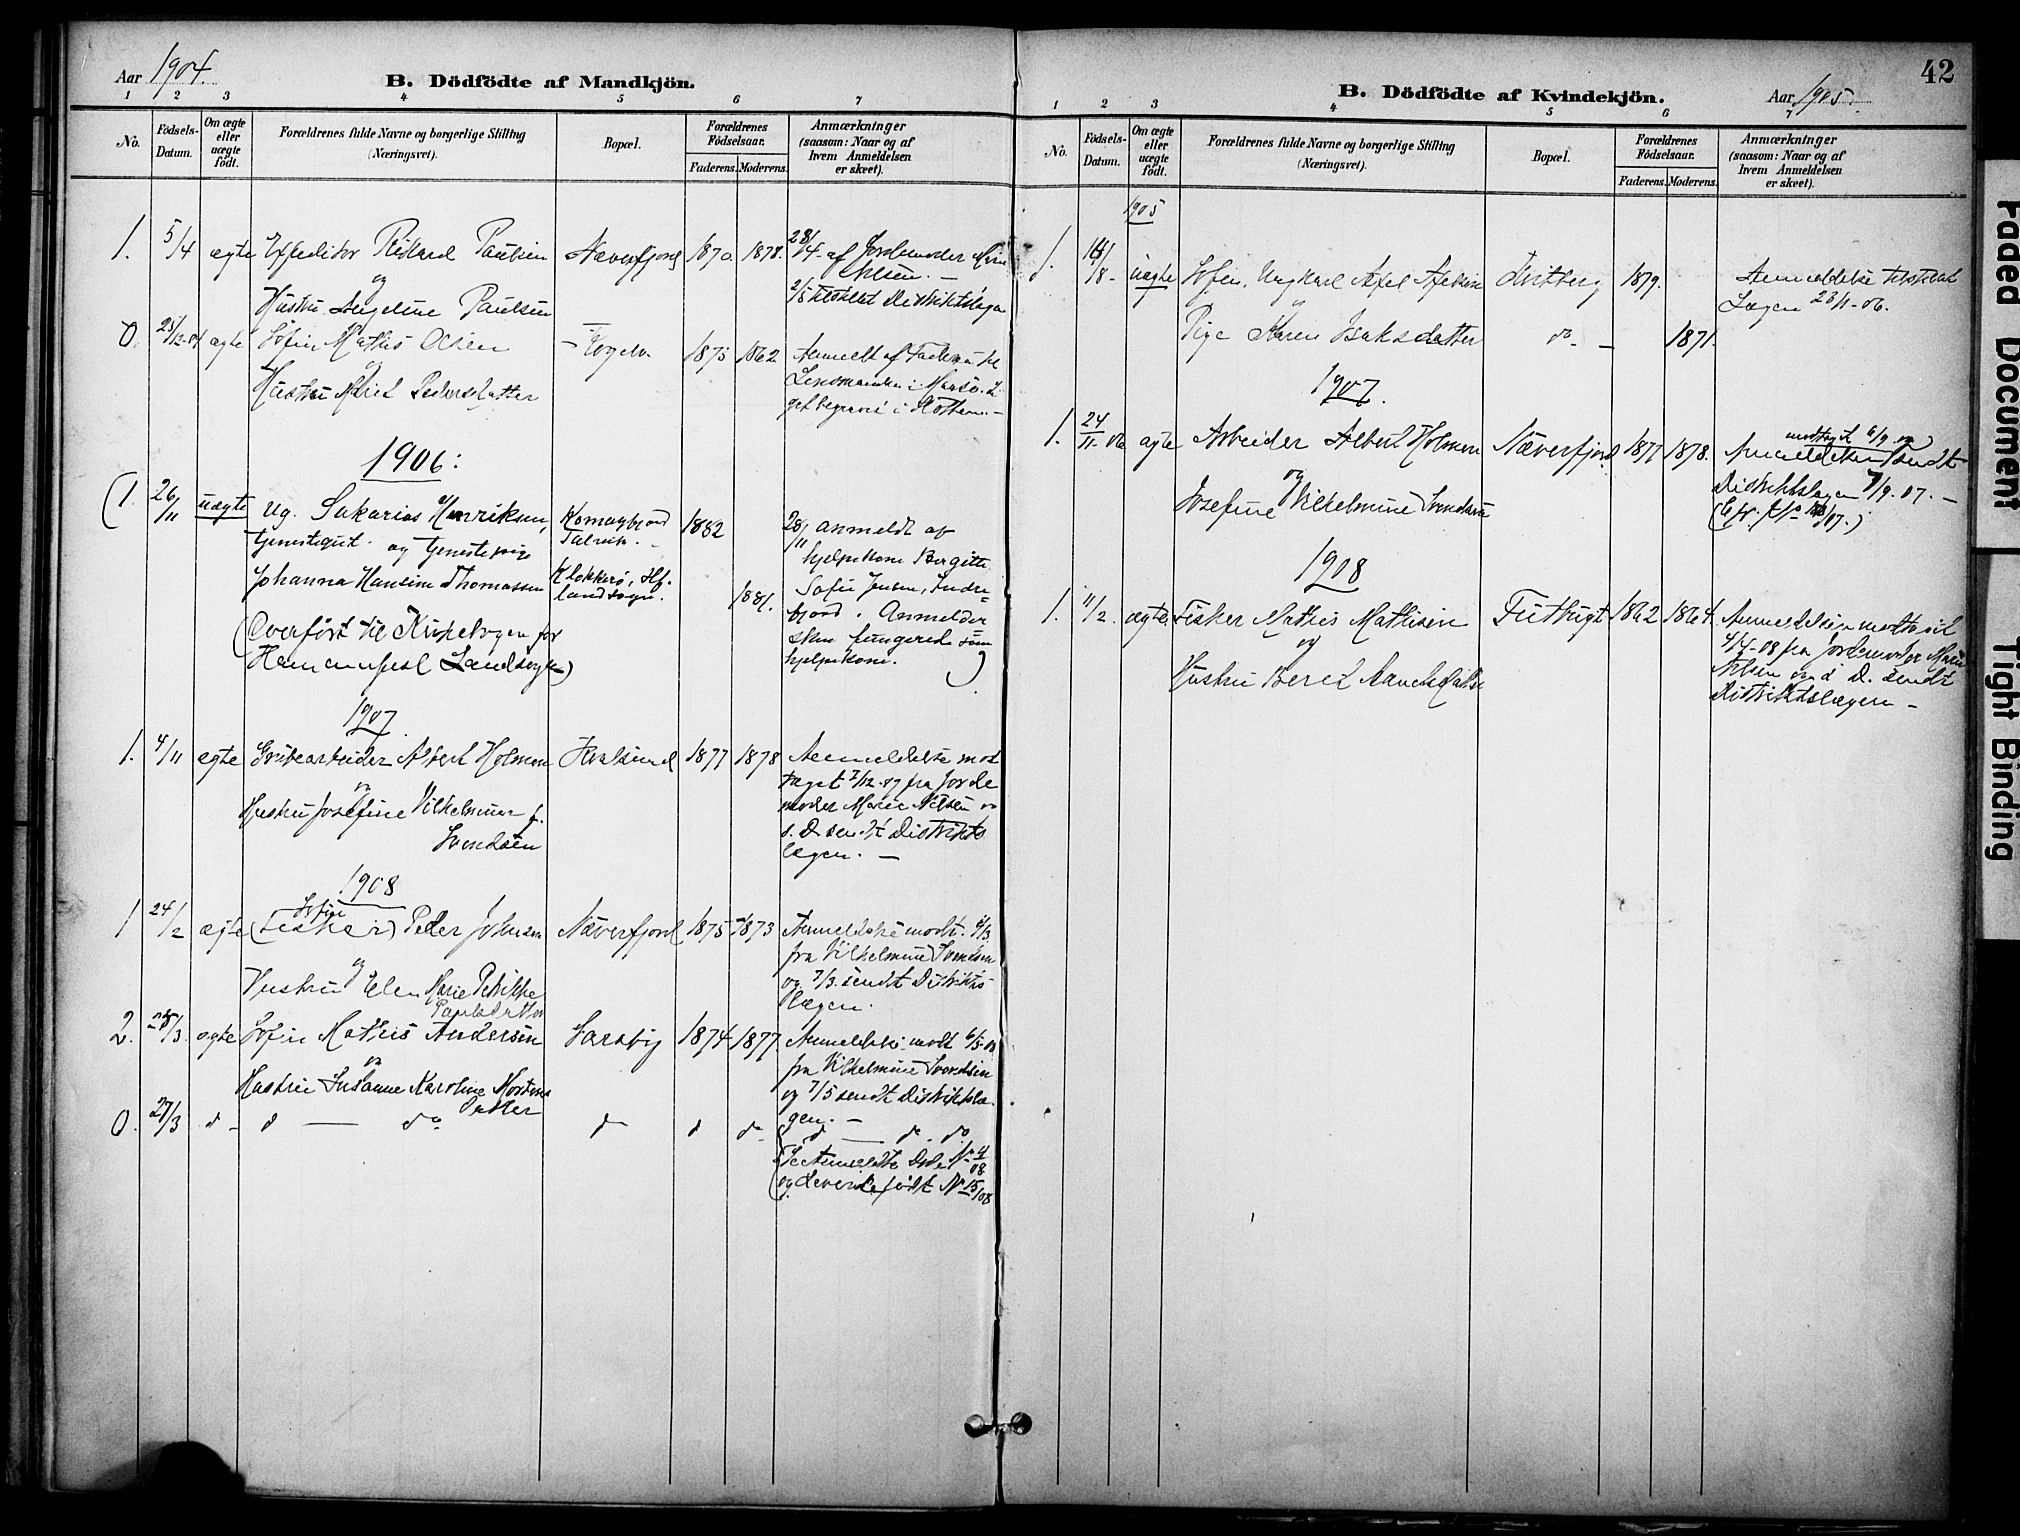 Aar 1904.
B. Dödfödte af Mandkjön.
1 2 3 4 5 6 7
No.
Födsels-
Datum.
Om ægte
eller
uægte
födt.
Forældrenes fulde Navne og borgerlige Stilling
(Næringsvei).
Bopæl.
Forældrenes
Födselsaar.
Faderens. Moderens.
Anmærkninger
(saasom: Naar og af
hvem Anmeldelsen
er skeet).
1. 5/4 ægte Expeditör Rikard Paulsen Næverfjord 1870. 1878. 28/4 af Jordemoder
og
Hustru Angeline Paulsen
2/5 tilstillet Distriktslægen
0. ægte Mathis Olsen 1875 1862 Anmeldt af
Hustru Marit Pedersdatter
1906:
(1. 26/11 uægte Ug. Sakarias Henriksen, Komagfjord 1882 28/11 anmeldt af
tjenestegut. og tjenestepige Talvik.
hjelpekone Bergitte
Johanna Hansine Thomassen Klokkerö, Hf. landsogn. 1881. Sofie Jensen, Indre-
fjord. Anmelder
(Overfört til Kirkebogen for
skm fungered som
Hammerfest Landsogn)
hjelpekone. )
1907
1. 4/11 ægte Grubearbeider Albert Holmen Kvalsund 1877 1878 Anmeldelse mod-
og
taget 7/12-07 fra Jorde
Hustru Josefine Vilhelmine f.
moder Marie Nilsen og
Svendsen
s. D. sendt Distrikts
lægen. —
1908
1 24/2 ægte (Fisker) Peder Johnsen Næverfjord 1875 1873 Anmeldelse modt. 6/3
og
fra Vilhelmine Svendsen
Hustru Elen Marie
og 7/3 sendt Distrikts-
lægen.
2. ægte Mathis Andersen 1874 1877. Anmeldelse modt 6/5-08
og
fra Vilhelmine Svendsen
Hustru Susanne Karoline Mortens
datter
og 7/5 sendt Distriktslæ-
gen. —
0. 27/3 d — d — do d d do d — do. do.
(Se Anmeldte Döde No 4/08
og levende födt No 15/08
42
B. Dödfödte af Kvindekjön.
Aar 1905.
1 2 3 4 5 6 7
No.
Födsels-
Datum.
Om ægte
eller
uægte
födt.
Forældrenes fulde Navne og borgerlige Stilling
(Næringsvei).
Bopæl.
Forældrenes
Födselsaar.
Faderens. Moderens.
Anmærkninger
(saasom: Naar og af
hvem Anmeldelsen
er skeet).
1905
1. uægte Ungkarl Axel 1879. Anmeldelse tilstillet
og
Lægen 23/1-06.
Pige Karen Isaksdatter do — 1871.
1907.
1. 24/11-06 ægte Arbeider Albert Holmen Næverfjord 1877 1878. modtaget 6/9
Anmeldelsen sendt
og
Distriktslægen 7/9.07. —
Josefine Vilhelmine Svendsen
1908
1. 11/2. ægte Fisker Mathis Mathisen 1862 1864. Anmeldelsen modtaget
og
4/4-08 fra Jordemoder Marie
Hustru Beret
Nilsen og s. D. sendt
Distriktslægen —
Faded Document
Tight Binding